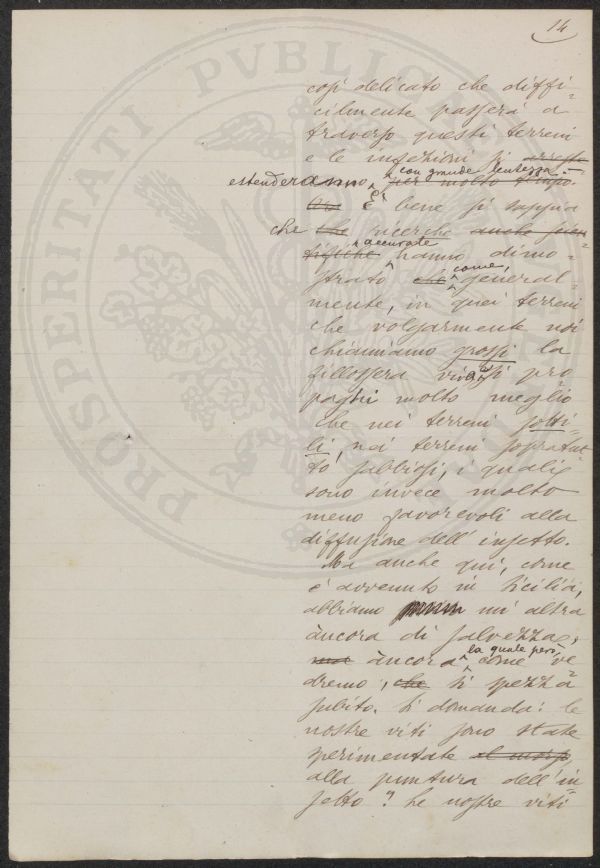 14
PROSPERITATI PVBLICAE
così delicato che diffi=
cilmente passerà a
traverso questi terreni
e le infezioni si
estenderanno, con grande lentezza per molto tempo.
È bene si sappia
che che ricerche anche scien
tifiche accurate hanno dimo=
strato che come, general=
mente, in quei terreni
che volgarmente noi
chiamiamo grossi la
fillossera vi si pro
paghi molto meglio
che nei terreni sotti=
li, nei terreni sopratut
to sabbiosi, i quali
sono invece molto
meno favorevoli alla
diffusione dell'insetto.
Ma anche qui, come
è avvenuto in Sicilia,
abbiamo un'altra
àncora di salvezza,
ma àncora la quale però, come ve
dremo, che si spezza
subito. Si domanda: le
nostre viti sono state
sperimentate al morso
alla puntura dell'in
setto? Le nostre viti